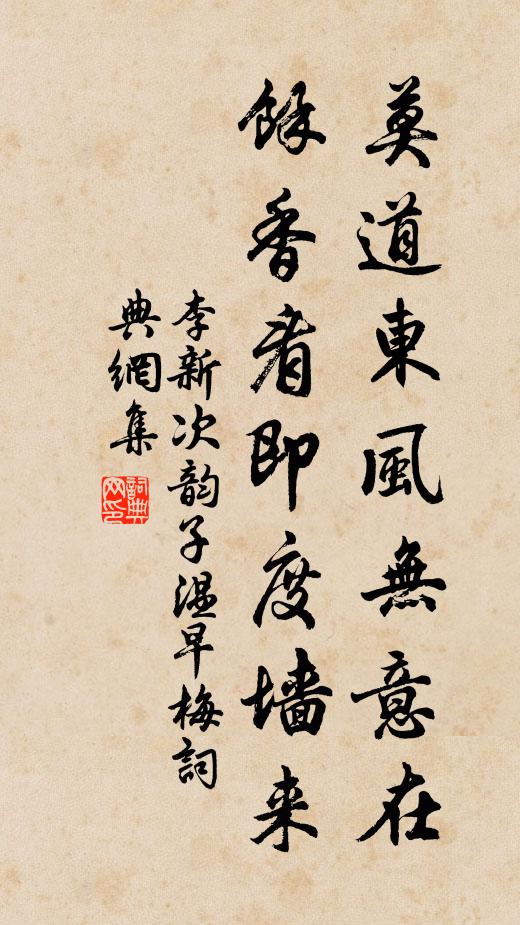 莫道東風無意在
餘香看即度墻来
李新次韵子温早梅詞
典網集
詞典網印